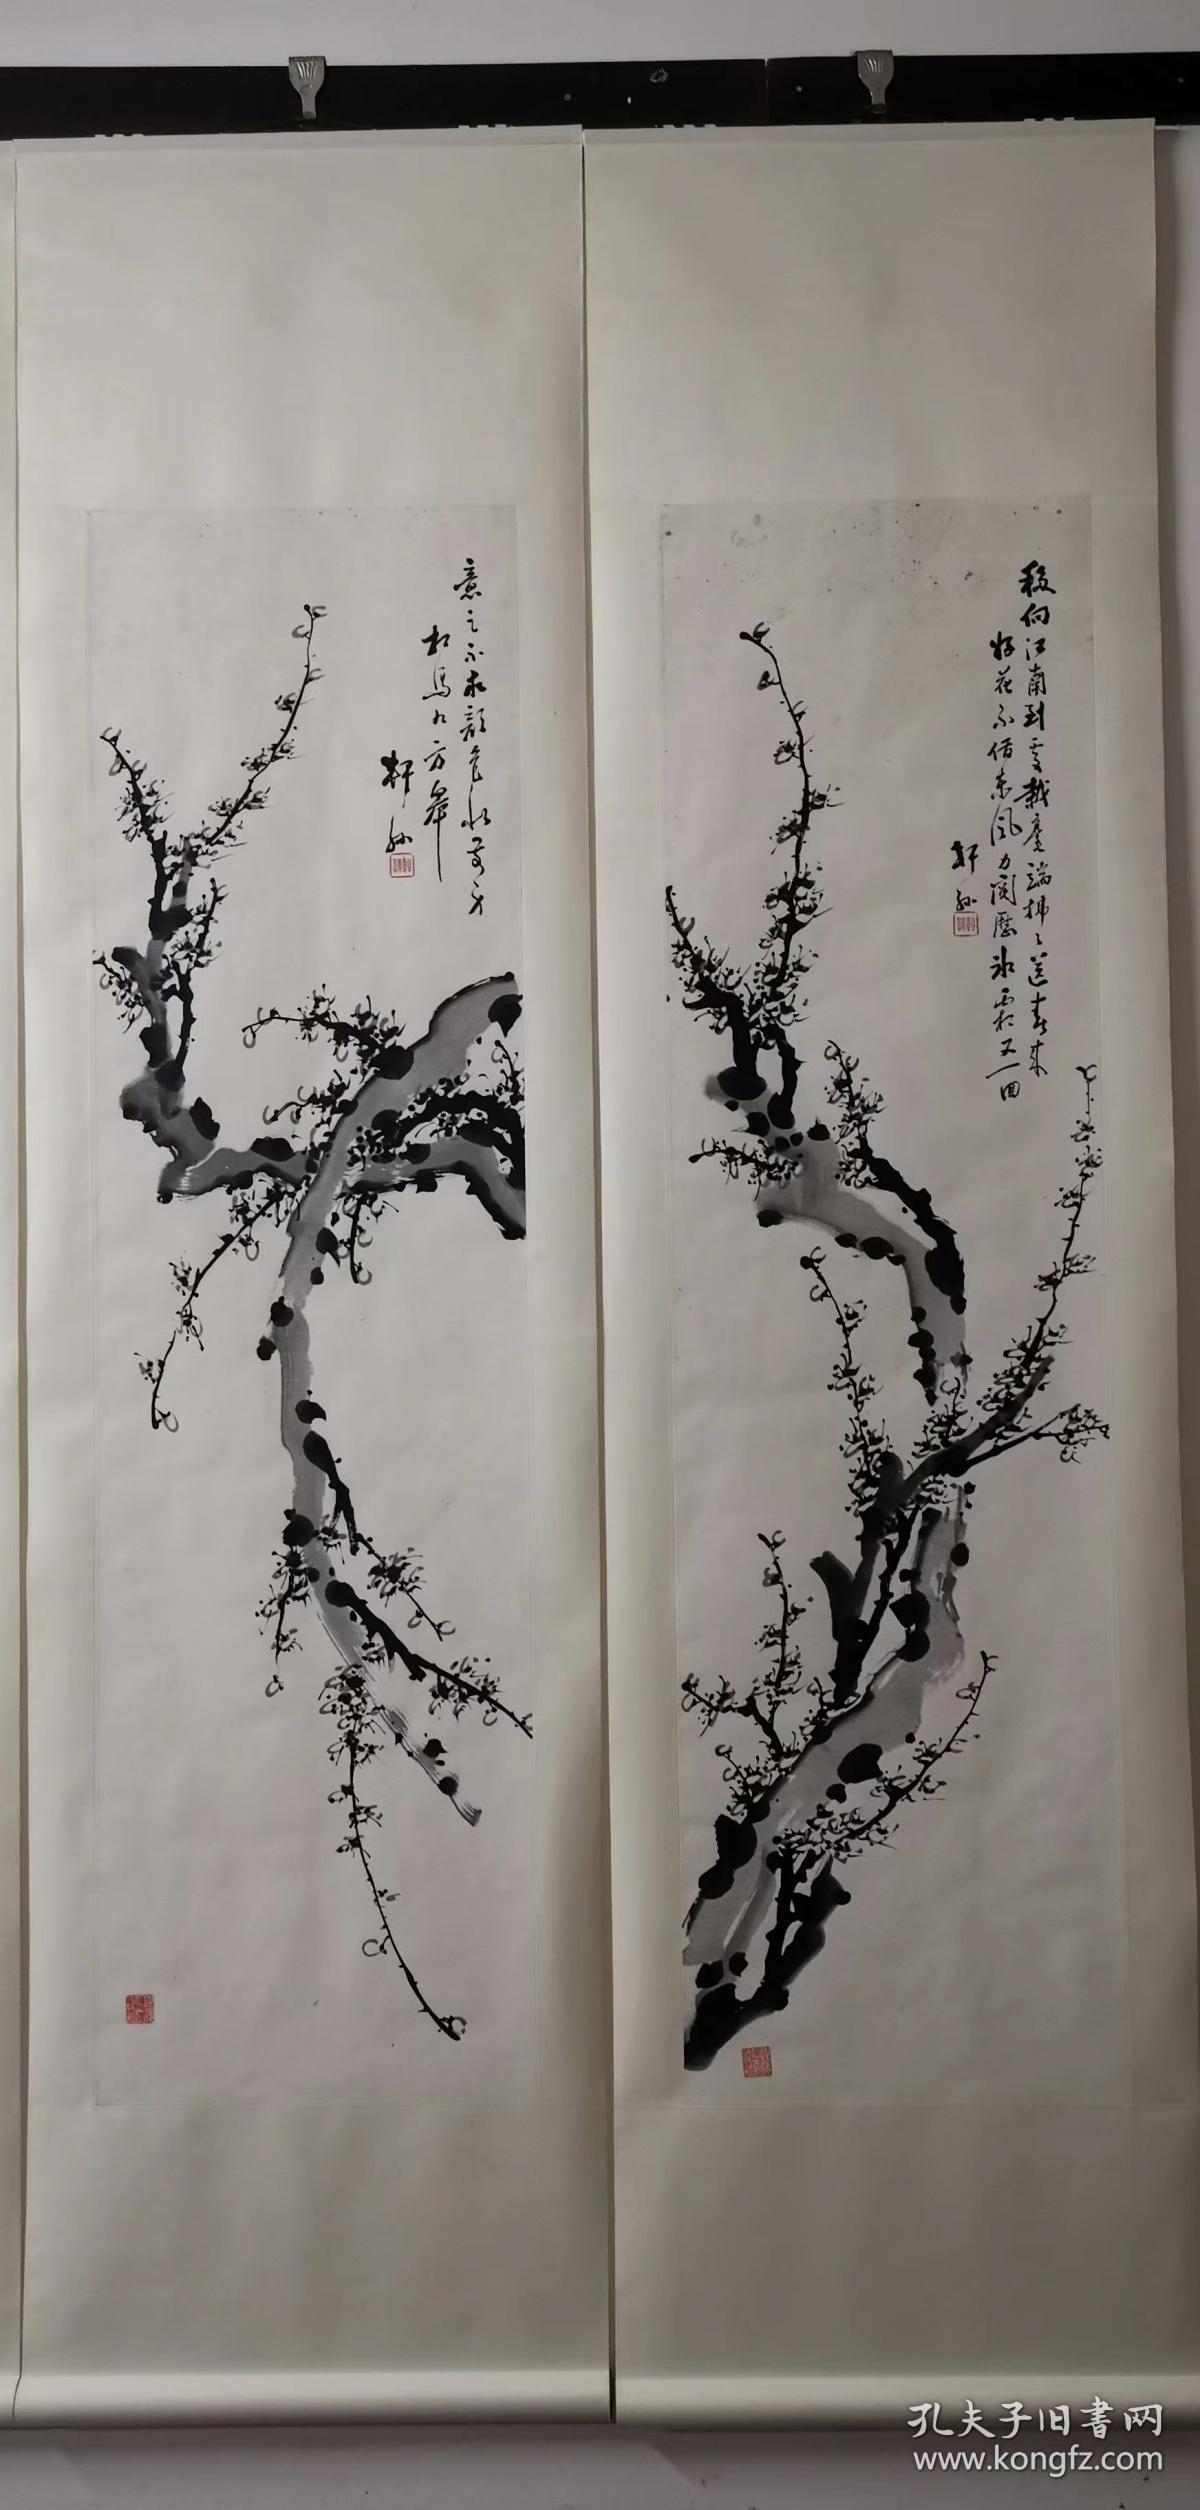 移向江南到處栽毫端拂〻送春來
好花不借東風力閱歷冰霜又一回
軒孫
意足不求顏色似前身
相馬九方皋
軒孫
孔夫子旧書网
www.kongfz.com